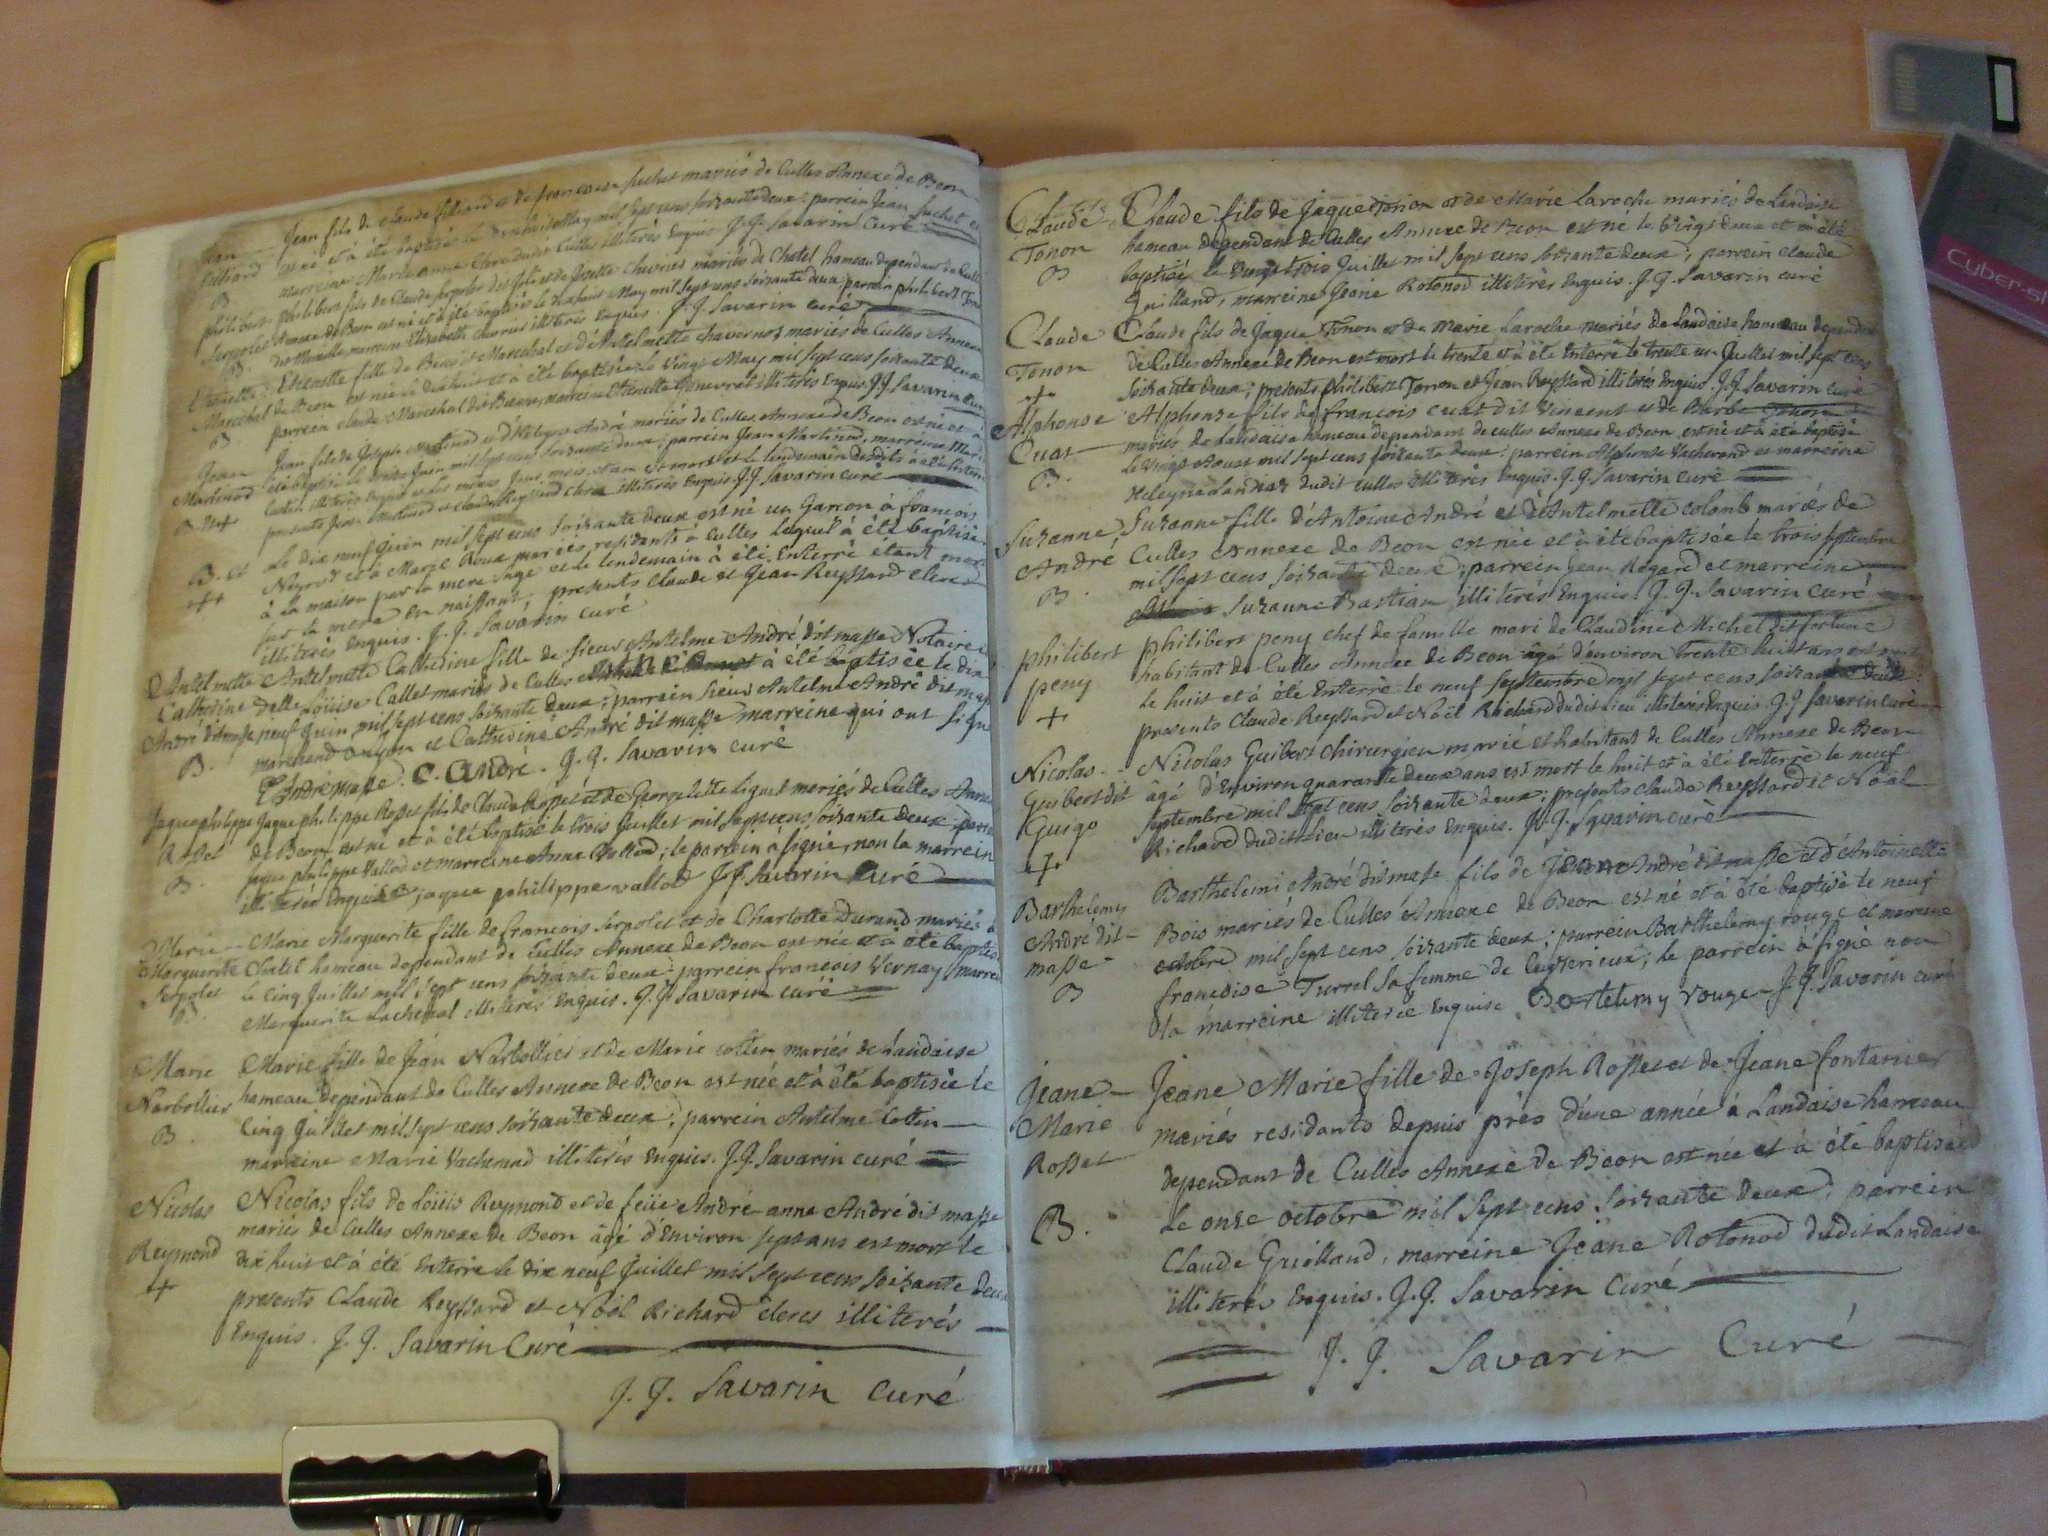 Jean fils de Claude filliard et de francoise suchet mariés de Culles Annexe de Beon
filliard est né et à été baptisé le May mil sept cens soixante deux: parrein Jean Suchet et
B marreine Marie anne Clerc dudit Culles illiterés Enquis. J.J. Savarin Curé
philibert philibert fils de Claude Serpolet dit Joli et de Josette Chevrier mariés de Chatel hameau dependant de Culles
Serpolet Annexe de Beon est né et à été baptisé le May mil sept cens soixante deux; parrein philibert
B. marreine Elizabeth illiterés Enquis. J.J. Savarin curé
Etienette Etienette fille de Benoit Marechal et d'Antelmette Chavernoz mariés de Culles Annexe
Marechal de Beon est née le dixhuit et à été baptisée le vingt May mil sept cens soixante deux
B parrein claude Marechal de Beon, marreine Etienette illiterés Enquis J.J. Savarin curé
Jean Jean fils de Joseph Martinod et d'Heleyne André mariés de Culles Annexe de Beon est né et à
Martinod été baptisé le Juin mil sept cens soixante deux; parrein Jean Martinod, marreine Marie
B. illiterés Enquis et les memes Jour, mois et an est mort et le lendemain à été Enterré
presents Jean Martinod et Claude Reyssard Clerc illiterés Enquis J.J. Savarin curé
B. et Le dix neuf Juin mil sept cens soixante deux est né un Garçon à francois
++ Neyrod et à Marie Roux mariés residants à Culles lequel à été baptisé
à la maison par la mere sage et le lendemain à été Enterré étant mort
sur la mere En naissant; presents Claude et Jean Reyssard Clercs
illiterés Enquis. J. J. Savarin curé
Antelmette Antelmette Catherine fille de sieur Antelme André dit masse Notaire et
Catherine delle Loüise Callet mariés de Culles Annexe à été baptisée le dix
André dit masse neuf Juin mil sept cens soixante deux; parrein sieur Antelme André dit masse
B. marchand et Catherine André dit masse marreine qui ont signé
André masse. C. André. J. J. Savarin curé
Jaque philippe Jaque philippe Rosset fils de Claude Rosset et de Georgelette Liguet mariés de Culles Annexe
Rosset de Beon est né et à été baptisé le trois Juillet mil sept cens soixante deux; parrein
B. jaque philippe Vallod et marreine Anne Vallod; le parrein à signé, non la marreine
illiterée Enquise jaque philippe vallod J J Savarin Curé
Marie Marie Marguerite fille de francois Serpolet et de Charlotte Durand mariés à
Marguerite Chatel hameau dependant de Culles Annexe de Beon est née et à été baptisée
Serpolet le cinq Juillet mil sept cens soixante deux: parrein francois Vernay, marreine
B. Marguerite Lachenal illiterés Enquis. J.J. Savarin curé
Marie Marie fille de Jean Narbollier et de Marie Cotten mariés de Landaise
Narbollier hameau dependant de Culles Annexe de Beon est née et à été baptisée le
B. Cinq Juillet mil sept cens soixante deux; parrein Antelme Cotten
marreine Marie Vachenod illiterés Enquis. J.J. Savarin curé
Nicolas Nicolas fils de Loüis Reymond et de feüe Andrée anne André dit masse
mariés de Culles Annexe de Beon âgé d'Environ sept ans est mort le
Reymond dix huit et à été Enterré le dix neuf Juillet mil sept cens soixante deux
+ presents Claude Reyssard et Noël Richard clercs illiterés
Enquis. J. J. Savarin Curé
J. J. Savarin curé
Claude Claude fils de Jaque Tonon et de Marie Laroche mariés de Landaise
Tonon hameau dependant de Culles Annexe de Beon est né le vingt deux et à été
B baptisé le vingt trois Juillet mil sept cens soixante deux; parrein Claude
Guilland, marreine Jeane Rotonod illiterés Enquis. J.J. Savarin curé
Claude Claude fils de Jaque Tonon et de Marie Laroche mariés de Landaise hameau dependant
Tonon de Culles Annexe de Beon est mort le trente et à été Enterré le trente un Juillet mil sept cens
+ soixante deux; presents philibert Tonon et Jean Reyssard illiterés Enquis. J.J. Savarin curé
Alphonse Alphonse fils de francois Cuat dit Vincent et de Barbe Tonon
Cuat mariés de Landaise hameau dependant de culles Annexe de Beon est né et à été baptisé
B. le vingt Aoust mil sept cens soixante deux: parrein Alphonse Vachenod et marreine
Heleyne dudit culles illiterés Enquis. J.J. Savarin curé
Suzanne Suzanne fille d'Antoine André et d'Antelmette Colomb mariés de
André Culles Annexe de Beon est née et à été baptisée le trois septembre
B. mil sept cens soixante deux; parrein Jean Regard et marreine
Suzanne Bastian illiterés Enquis. J. J. Savarin curé
philibert philibert peny chef de famille mari de Claudine Michel dit fortune
peny habitant de Culles Annexe de Beon âgé d'environ trente huit ans est mort
+ le huit et à été Enterré le neuf septembre mil sept cens soixante deux;
presents Claude Reyssard et Noël Richard dudit lieu illiterés Enquis. J. J Savarin curé
Nicolas Nicolas Guibert chirurgien marié et habitant de Culles Annexe de Beon
Guibert dit âgé d'Environ quarante deux ans est mort le huit et à été Enterré le neuf
Guigo septembre mil sept cens soixante deux; presents Claude Reyssard et Noël
+ Richard dudit lieu illiterés Enquis. J. J. Savarin curé
Barthelemy Barthelemi André dit masse fils de Jean André dit masse et d'Antoinette
André dit Bois mariés de Culles Annexe de Beon est né et à été baptisé le neuf
masse octobre mil sept cens soixante deux; parrein Barthelemy rouge et marreine
B francoise Turrel sa femme de; le parrein à signé non
la marreine illiterée Enquise Bartelemy rouge J.J. Savarin curé
Jeane Jeane Marie fille de Joseph Rosset et de Jeane fontanier
Marie mariés residants depuis près d'une année à Landaise hameau
Rosset dependant de Culles Annexe de Beon est née et à été baptisée
B. Le onze octobre mil sept cens soixante deux; parrein
Claude Guilland, marreine Jeane Rotonod dudit Landaise
illiterés Enquis. J. J. Savarin Curé
J. J. Savarin Curé
Cyber-sh